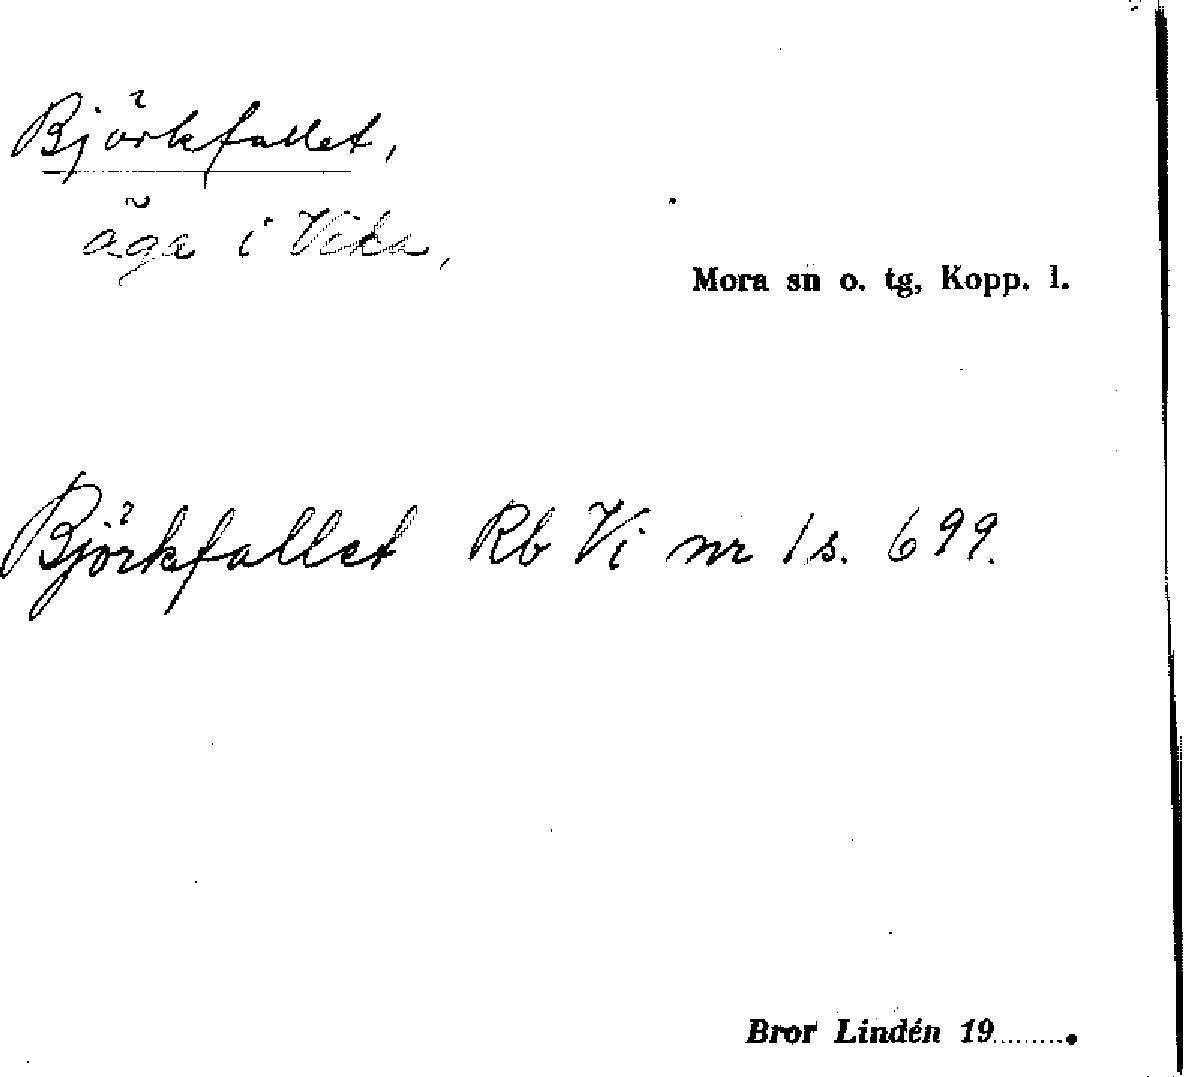 Björkfallet,
äga i Vika,
Mora sn o. tg, Kopp. l.
Björkfallet Rb Vi nr 1 s. 699.
Bror Lindén 19.........